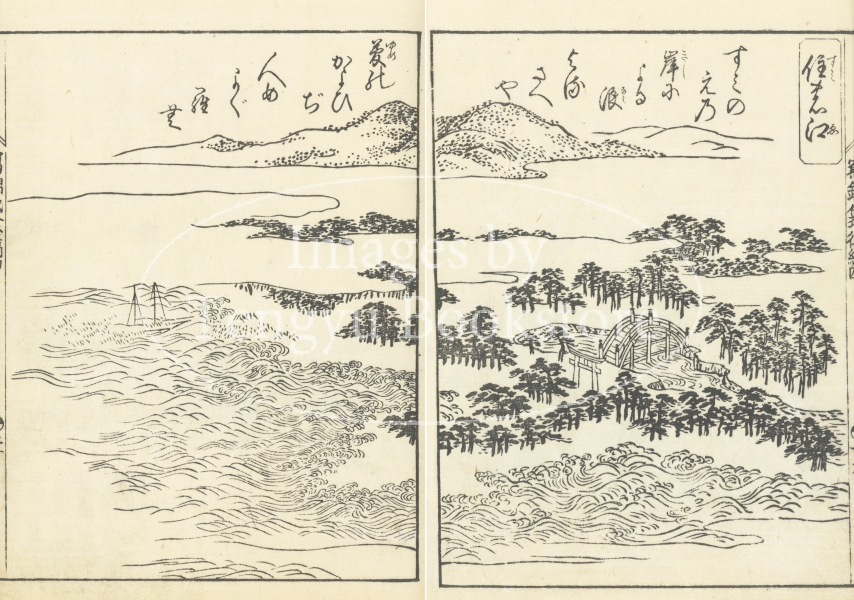 住の江
すみの
え乃
岸に
よる
波
よる
さへ
や
夢の
かよひ
ぢ
人め
よく
羅
无
Images by
Tengyu Bookstore